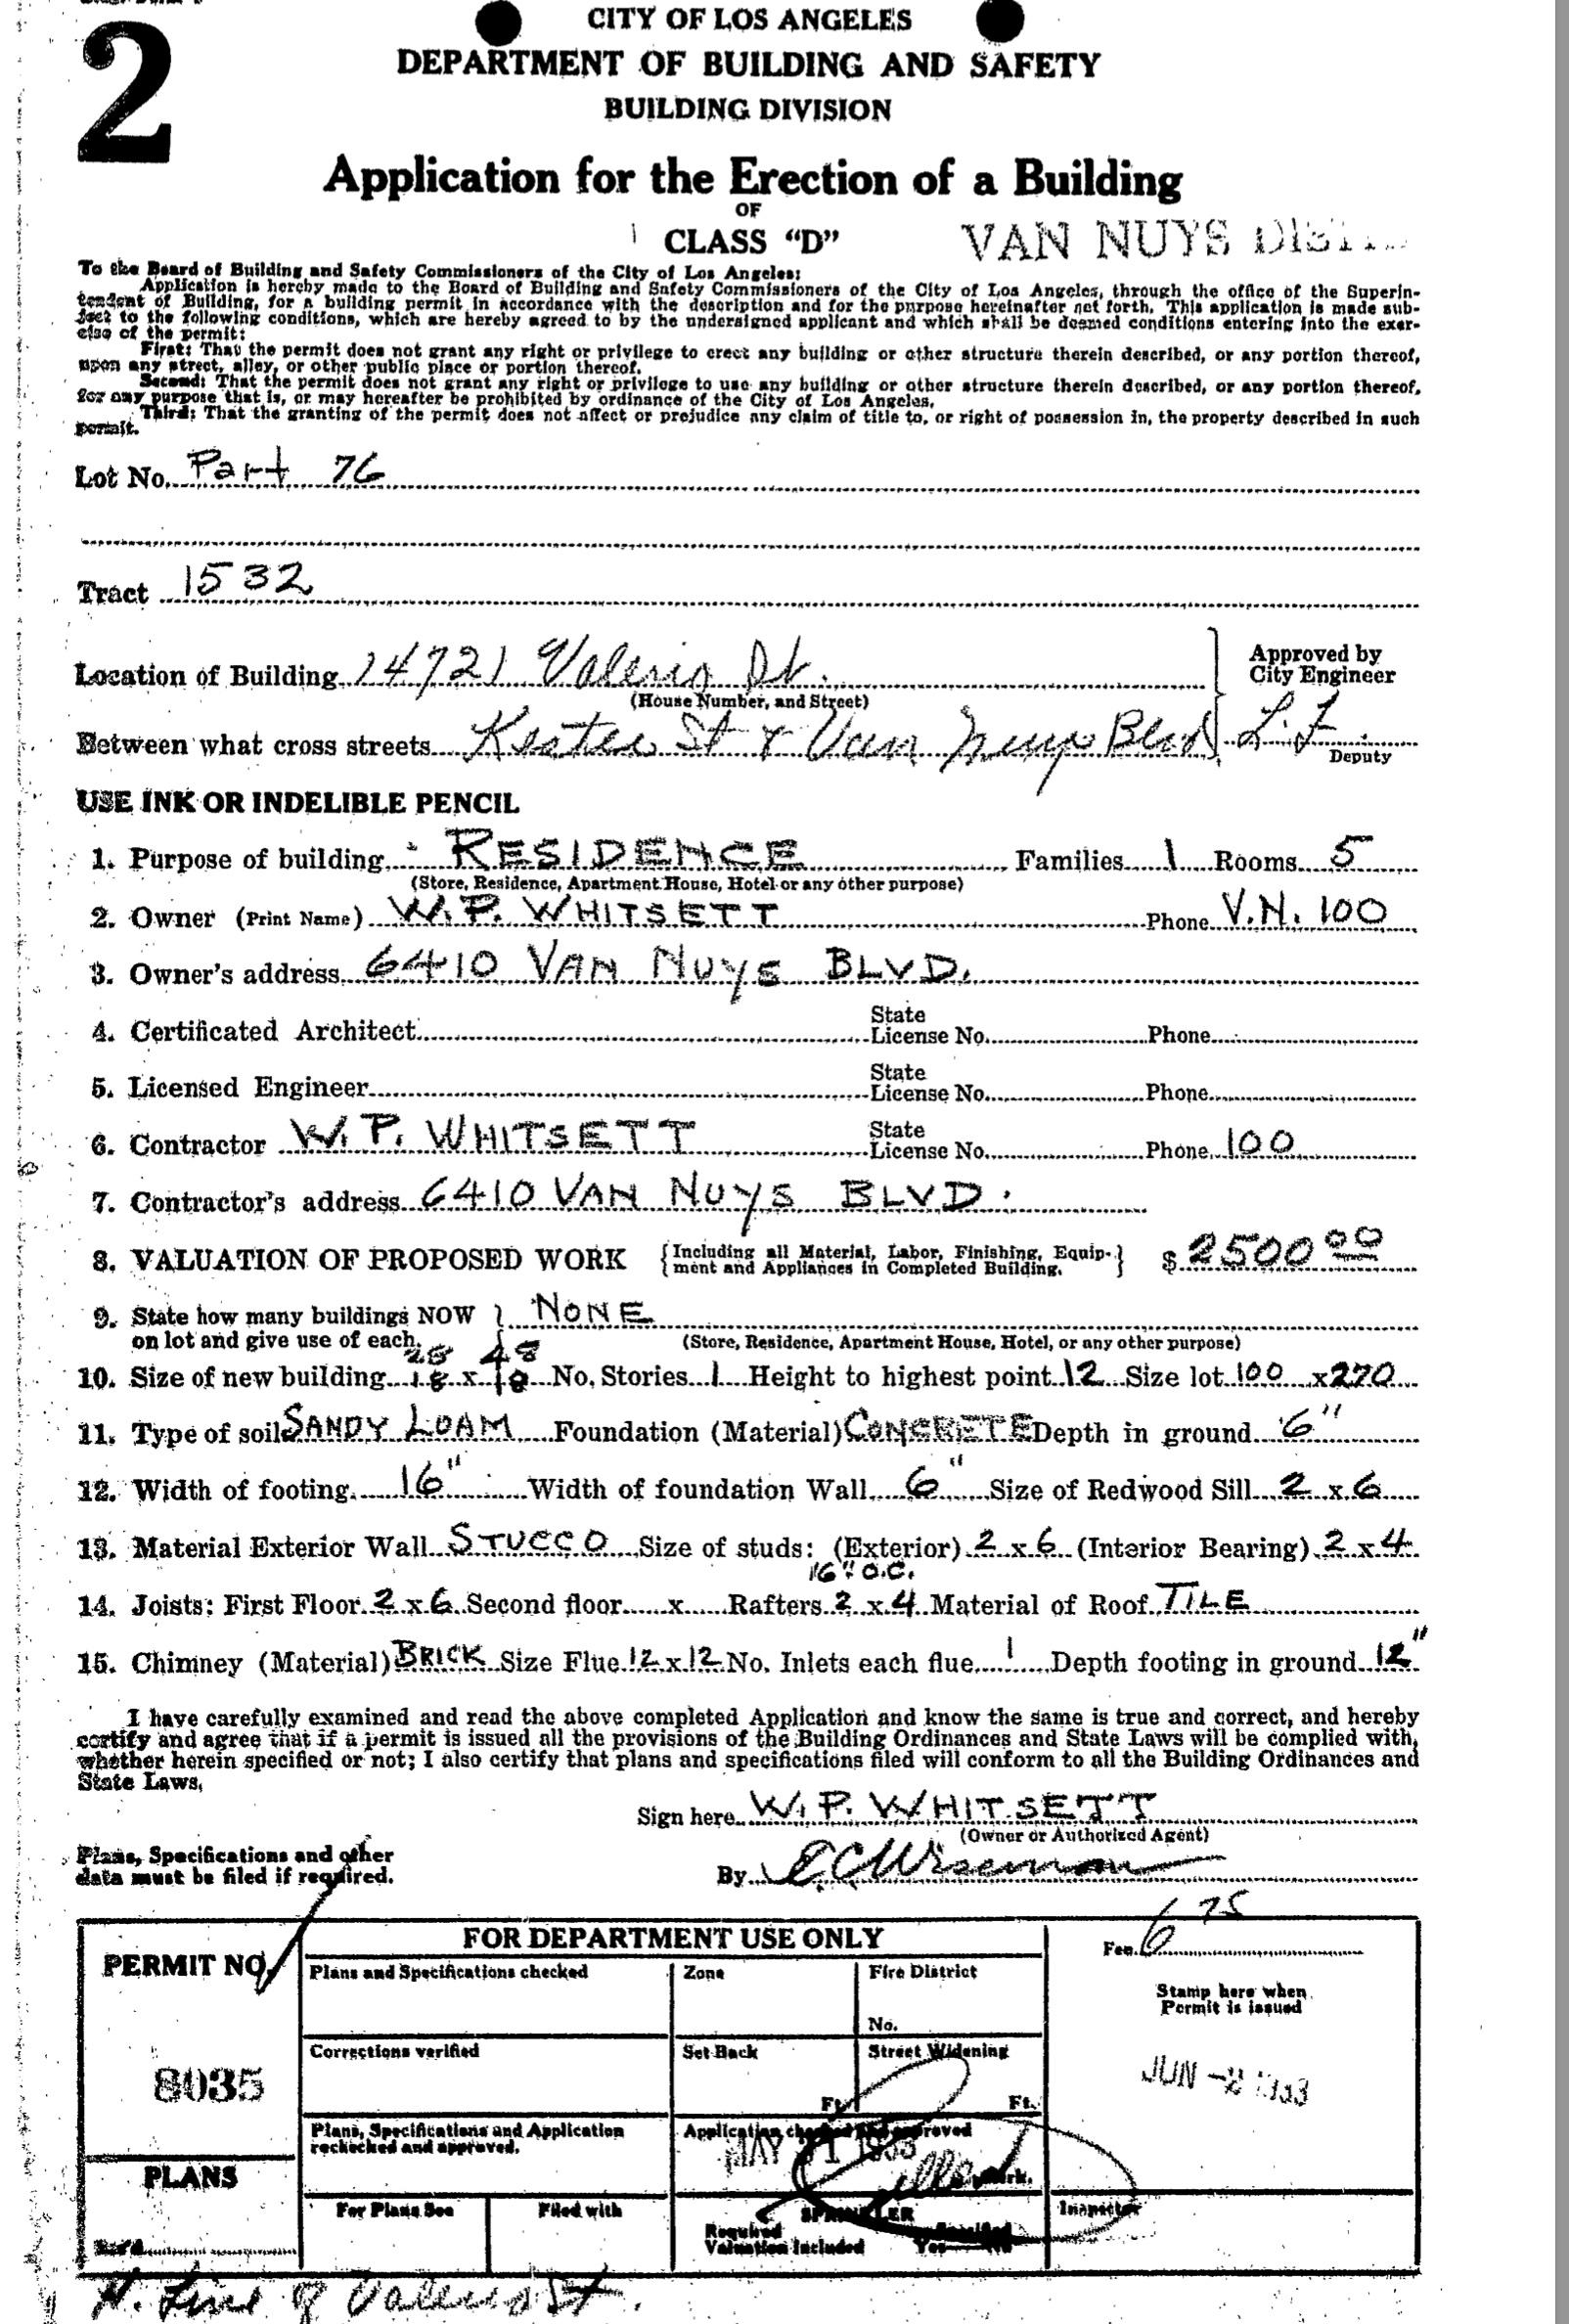 2
CITY OF LOS ANGELES
DEPARTMENT OF BUILDING AND SAFETY
BUILDING DIVISION
Application for the Erection of a Building
OF
CLASS "D"
VAN NUYS
To the Board of Building and Safety Commissioners of the City of Los Angeles:
Application is hereby made to the Board of Building and Safety Commissioners of the City of Los Angeles, through the office of the Superin-
tendent of Building, for a building permit in accordance with the description and for the purpose hereinafter set forth. This application is made sub-
ject to the following conditions, which are hereby agreed to by the undersigned applicant and which shall be deemed conditions entering into the exer-
cise of the permit:
First: That the permit does not grant any right or privilege to erect any building or other structure therein described, or any portion thereof,
upon any street, alley, or other public place or portion thereof.
Second: That the permit does not grant any right or privilege to use any building or other structure therein described, or any portion thereof,
for any purpose that is, or may hereafter be prohibited by ordinance of the City of Los Angeles.
Third: That the granting of the permit does not affect or prejudice any claim of title to, or right of possession in, the property described in such
permit.
Lot No. Part 76
Tract 1532
Location of Building 14721 Valerio St.
(House Number, and Street)
Approved by
City Engineer
Between what cross streets Kester St & Van Nuys Blvd
L. F.
Deputy
USE INK OR INDELIBLE PENCIL
1. Purpose of building RESIDENCE Families 1 Rooms 5
(Store, Residence, Apartment House, Hotel or any other purpose)
2. Owner (Print Name) W. P. WHITSETT Phone V.N. 100
3. Owner's address 6410 VAN NUYS BLVD.
4. Certificated Architect State License No. Phone
5. Licensed Engineer State License No. Phone
6. Contractor W. P. WHITSETT State License No. Phone 100
7. Contractor's address 6410 VAN NUYS BLVD.
8. VALUATION OF PROPOSED WORK {Including all Material, Labor, Finishing, Equip-ment and Appliances in Completed Building.} $ 2500 00
9. State how many buildings NOW } NONE
on lot and give use of each. (Store, Residence, Apartment House, Hotel, or any other purpose)
28 48
10. Size of new building x No. Stories 1 Height to highest point 12 Size lot 100 x 270
11. Type of soil SANDY LOAM Foundation (Material) CONCRETE Depth in ground 6"
12. Width of footing 16" Width of foundation Wall 6" Size of Redwood Sill 2 x 6
13. Material Exterior Wall STUCCO Size of studs: (Exterior) 2 x 6 (Interior Bearing) 2 x 4
16" O.C.
14. Joists: First Floor 2 x 6 Second floor x Rafters 2 x 4 Material of Roof TILE
15. Chimney (Material) BRICK Size Flue 12 x 12 No. Inlets each flue 1 Depth footing in ground 12"
I have carefully examined and read the above completed Application and know the same is true and correct, and hereby
certify and agree that if a permit is issued all the provisions of the Building Ordinances and State Laws will be complied with,
whether herein specified or not; I also certify that plans and specifications filed will conform to all the Building Ordinances and
State Laws.
Sign here W. P. WHITSETT
(Owner or Authorized Agent)
Plans, Specifications and other
data must be filed if required.
By E C Wiseman
FOR DEPARTMENT USE ONLY
PERMIT NO.
8035
PLANS
Plans and Specifications checked
Zone
Fire District
No.
Fee 6 75
Stamp here when
Permit is issued
JUN -2 1933
Corrections verified
Set Back
Ft.
Street Widening
Ft.
Plans, Specifications and Application
rechecked and approved.
Application checked and approved
MAY 31 1933
Clerk.
For Plans See
Filed with
SPRINKLER
Required
Valuation Included
Specified
Yes—No
Inspector
N. Line of Valerio St.